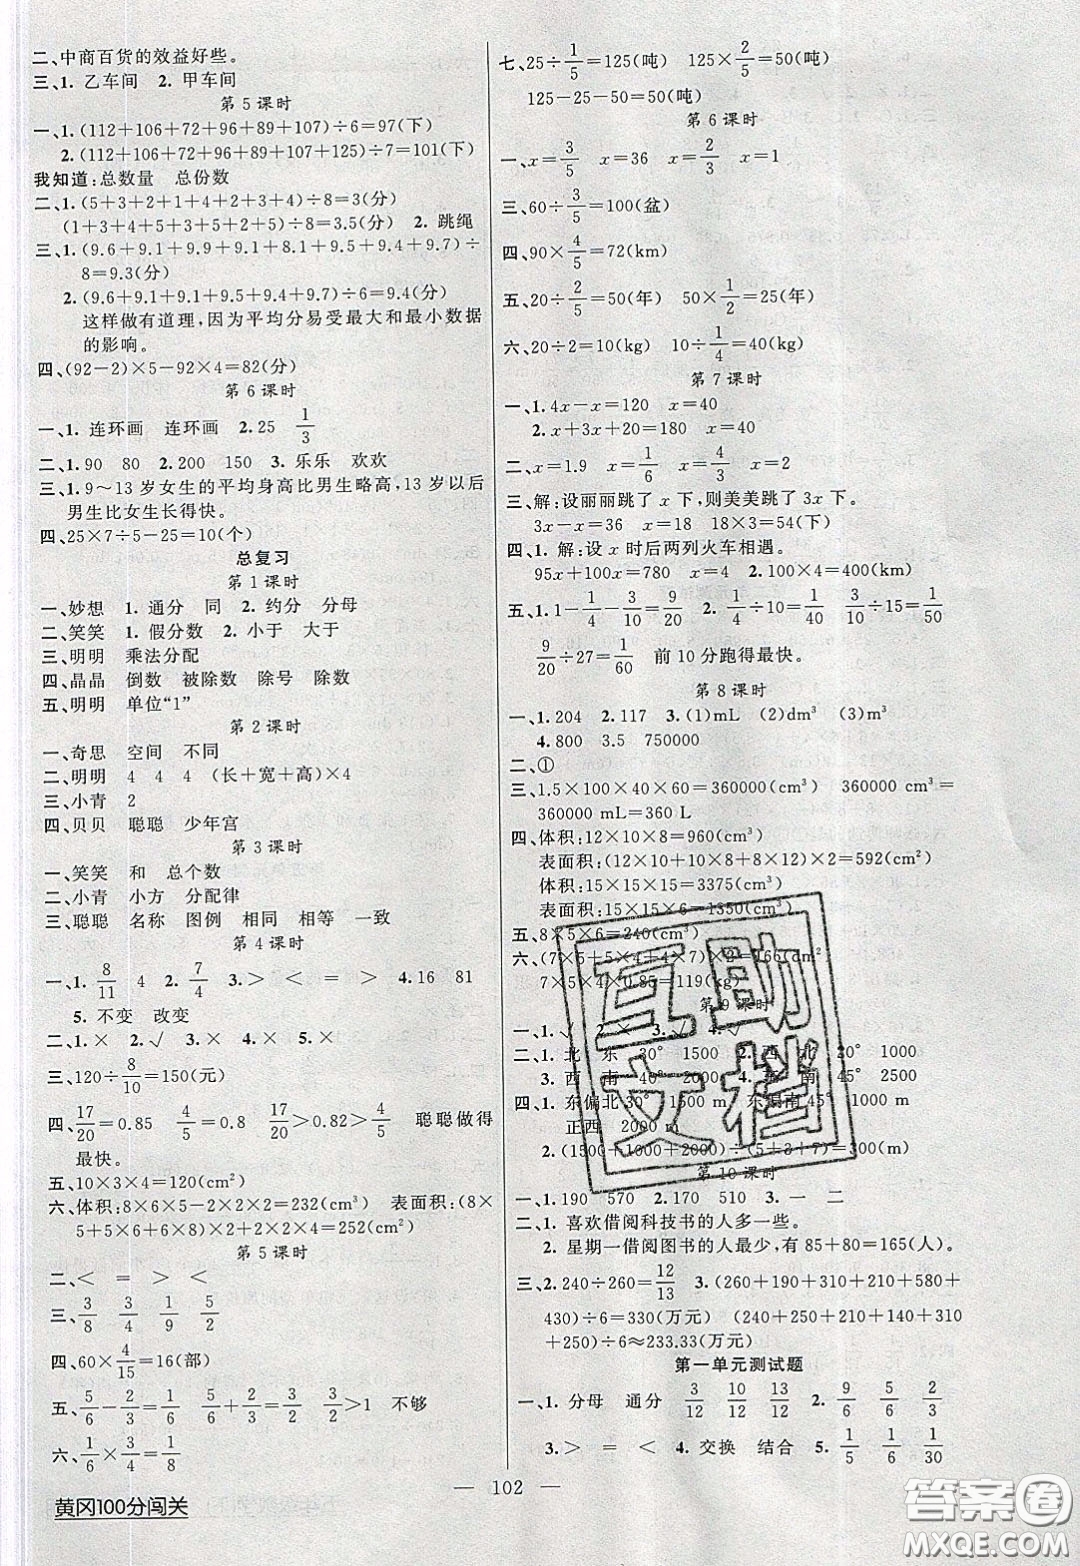 二、中商百货的效益好些。
三、1. 乙车间 2. 甲车间
第 5 课时
一、1. (112＋106＋72＋96＋89＋107)÷6＝97(下)
2. (112＋106＋72＋96＋89＋107＋125)÷7＝101(下)
我知道:总数量 总份数
二、1. (5＋3＋2＋1＋4＋2＋4＋3)÷8＝3(分)
(1＋3＋4＋5＋3＋5＋2＋5)÷8＝3.5(分) 2. 跳绳
三、1. (9.6＋9.1＋9.9＋9.1＋8.1＋9.5＋9.4＋9.7)÷
8＝9.3(分)
2. (9.6＋9.1＋9.1＋9.5＋9.4＋9.7)÷6＝9.4(分)
这样做有道理,因为平均分易受最大和最小数据
的影响。
四、(92－2)×5－92×4＝82(分)
第 6 课时
一、1. 连环画 连环画 2. 25 1/3
二、1. 90 80 2. 200 150 3. 乐乐 欢欢
三、1. 9～13 岁女生的平均身高比男生略高,13 岁以后
男生比女生长得快。
四、25×7÷5－25＝10(个)
总复习
第 1 课时
一、妙想 1. 通分 同 2. 约分 分母
二、笑笑 1. 假分数 2. 小于 大于
三、明明 乘法分配
四、晶晶 倒数 被除数 除号 除数
五、明明 单位“1”
第 2 课时
一、奇思 空间 不同
二、明明 4 4 4 (长＋宽＋高)×4
三、小青 2
四、贝贝 聪聪 少年宫
第 3 课时
一、笑笑 和 总个数
二、小青 小方 分配律
三、聪聪 名称 图例 相同 相等 一致
第 4 课时
一、1. 8/11 4 2. 7/4 3. ＞ ＜ ＝ ＞ 4. 16 81
5. 不变 改变
二、1. × 2. √ 3. × 4. × 5. ×
三、120÷8/10＝150(元)
四、17/20＝0.85 4/5＝0.8 17/20＞0.82＞4/5 聪聪做得
最快。
五、10×3×4＝120(cm²)
六、体积:8×6×5－2×2×2＝232(cm³) 表面积:(8×
5＋5×6＋6×8)×2＋2×2×4＝252(cm²)
第 5 课时
二、＜ ＝ ＞ ＜
三、3/8 3/4 1/9 5/2
四、60×4/15＝16(部)
五、5/6－2/3＝1/6 5/6＋2/3＝3/2 3/2＞1 不够
六、1/6×3/4＝1/8
七、25÷1/5＝125(吨) 125×2/5＝50(吨)
125－25－50＝50(吨)
第 6 课时
一、x＝3/5 x＝36 x＝2/3 x＝1
三、60÷3/5＝100(盆)
四、90×4/5＝72(km)
五、20÷2/5＝50(年) 50×1/2＝25(年)
六、20÷2＝10(kg) 10÷1/4＝40(kg)
第 7 课时
一、1. 4x－x＝120 x＝40
2. x＋3x＋20＝180 x＝40
二、x＝1.9 x＝1/6 x＝4/3 x＝2
三、解:设丽丽跳了 x 下,则美美跳了 3x 下。
3x－x＝36 x＝18 18×3＝54(下)
四、1. 解:设 x 时后两列火车相遇。
95x＋100x＝780 x＝4 2. 100×4＝400(km)
五、1. 1－1/4－3/10＝9/20 2. 1/4÷10＝1/40 3/10÷15＝1/50
9/20÷27＝1/60 前 10 分跑得最快。
第 8 课时
一、1. 204 2. 117 3. (1)mL (2)dm³ (3)m³
4. 800 3.5 750000
二、①
三、1.5×100×40×60＝360000(cm³) 360000 cm³＝
360000 mL＝360 L
四、体积:12×10×8＝960(cm³)
表面积:(12×10＋10×8＋8×12)×2＝592(cm²)
体积:15×15×15＝3375(cm³)
表面积:15×15×6＝1350(cm²)
五、8×5×6＝240(cm³)
六、(7×5＋5×4＋4×7)×2＝166(cm²)
7×5×4×0.85＝119(kg)
第 9 课时
一、1. √ 2. × 3. √ 4. √
二、1. 北 东 30° 1500 2. 西 北 20° 1000
3. 西 南 40° 2000 4. 东 南 45° 2500
四、1. 东偏北30° 1500 m 东偏南45° 1000 m
正西 2000 m
2. (1500＋1000＋2000)÷(5＋3＋7)＝300(m)
第 10 课时
一、1. 190 570 2. 170 510 3. 一 二
二、1. 喜欢借阅科技书的人多一些。
2. 星期一借阅图书的人最少,有 85＋80＝165(人)。
三、2. 240÷260＝12/13 3. (260＋190＋310＋210＋580＋
430)÷6＝330(万元) (240＋250＋210＋140＋310
＋250)÷6≈233.33(万元)
第一单元测试题
一、1. 分母 通分 3/12 10/12 13/12 2. 9/6 5/6 2/3
3. ＞ ＝ ＜ 4. 交换 结合 5. 1/5 1/6 1/30
— 102 —
黄冈100分闯关
互助
文档
答案圈
MXQE.COM